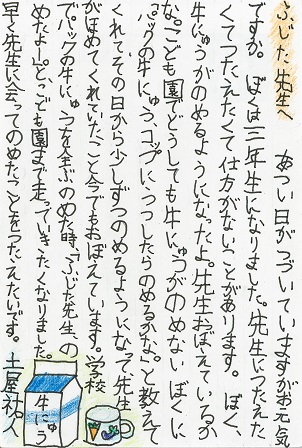 ふじた先生へ
あつい日がつづいていますがお元気
ですか。ぼくは三年生になりました。先生につたえた
くてつたえたくて仕方がないことがあります。ぼく、
牛にゅうがのめるようになったよ。先生おぼえているか
な。こども園でどうしても牛にゅうがのめないぼくに、
「パックの牛にゅう、コップにうつしたらのめるかな。」と教えて
くれて、その日から少しずつのめるようになって、先生
がほめてくれていたこと今でもおぼえています。学校
でパックの牛にゅうを全ぶのめた時、「ふじた先生、の
めたよ!」と、こども園まで走っていきたくなりました。
早く先生に会ってのめたことをつたえたいです。土屋祐人
牛にゅう